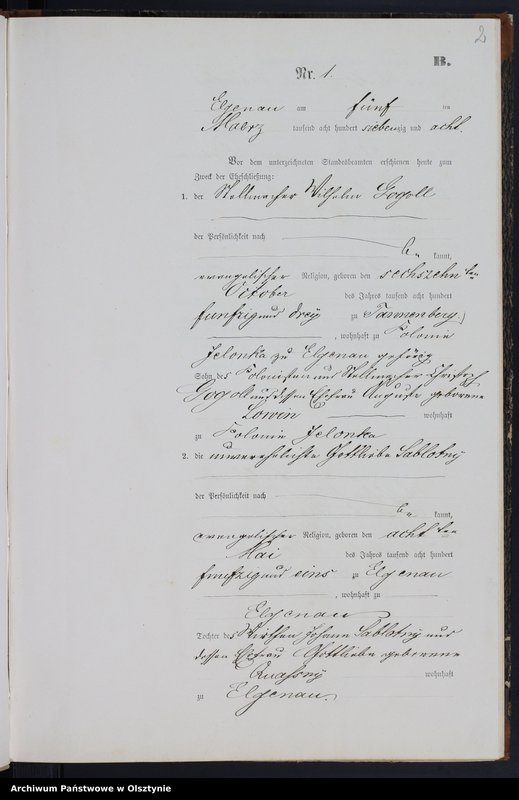 2
B.
Nr. 1.
Elgenau am fünf ten
Maerz tausend acht hundert siebenzig und acht.
Vor dem unterzeichneten Standesbeamten erschienen heute zum
Zweck der Eheschließung:
1. der Stellmacher Wilhelm Gogoll
der Persönlichkeit nach
be kannt,
evangelischer Religion, geboren den sechszehn ten
October des Jahres tausend acht hundert
funfzig und drey zu Tannenberg
, wohnhaft zu Kolonie
Jelonka zu Elgenau gehörig
Sohn des Kolonisten und Stellmacher
Gogoll und dessen Ehefrau Auguste geborene
Lowin wohnhaft
zu Kolonie Jelonka
2. die unverehelichte Gottliebe Sablotny
der Persönlichkeit nach
be kannt,
evangelischer Religion, geboren den acht ten
Mai des Jahres tausend acht hundert
funfzig und eins zu Elgenau
, wohnhaft zu
Elgenau
Tochter des Wirthen Johann Sablotny und
dessen Ehefrau Gottliebe geborene
wohnhaft
zu Elgenau.
Archiwum Państwowe w Olsztynie